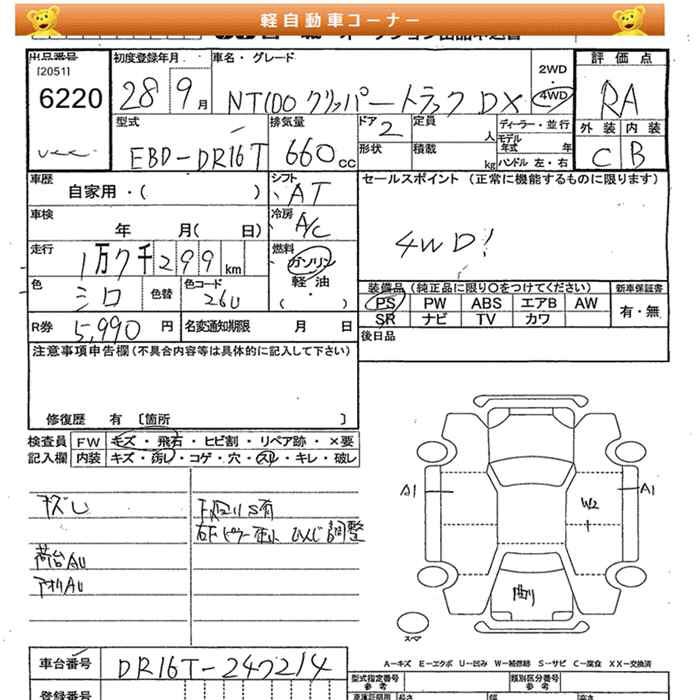 軽自動車コーナー
出品番号
[2051]
6220
初度登録年月
28 9 月
車名・グレード
NT100 クリッパートラック DX
2WD
・
4WD
評価点
RA
外装 内装
C B
型式
EBD-DR16T
排気量
660 cc
ドア
2
形状
定員
人
積載
kg
ディーラー・並行
モデル
年式 年
ハンドル 左・右
車歴
自家用・( )
シフト
AT
セールスポイント (正常に機能するものに限ります)
4WD!
車検
年 月( 日)
冷房
A/C
走行
1万7千299 km
燃料
ガソリン
軽油
( ・ )
色
シロ
色替
色コード
26U
装備品 (純正品に限り○をつけてください)
PS PW ABS エアB AW
SR ナビ TV カワ
新車保証書
有・無
R券 5,990 円
名変通知期限 月 日
後日品
注意事項申告欄(不具合内容等は具体的に記入して下さい)
修復歴 有 [箇所 ]
検査員
記入欄
FW キズ・飛石・ヒビ割・リペア跡・×要
内装 キズ・汚し・コゲ・穴・スレ・キレ・破レ
荷台AU
アオリAU
調整
A1
A1
W2
曲り
スペア
A-キズ E-エクボ U-凹み W-補修跡 S-サビ C-腐食 XX-交換済
車台番号 DR16T-247214
登録番号
型式指定番号
参考
類別区分番号
参考
長さ
幅
高さ